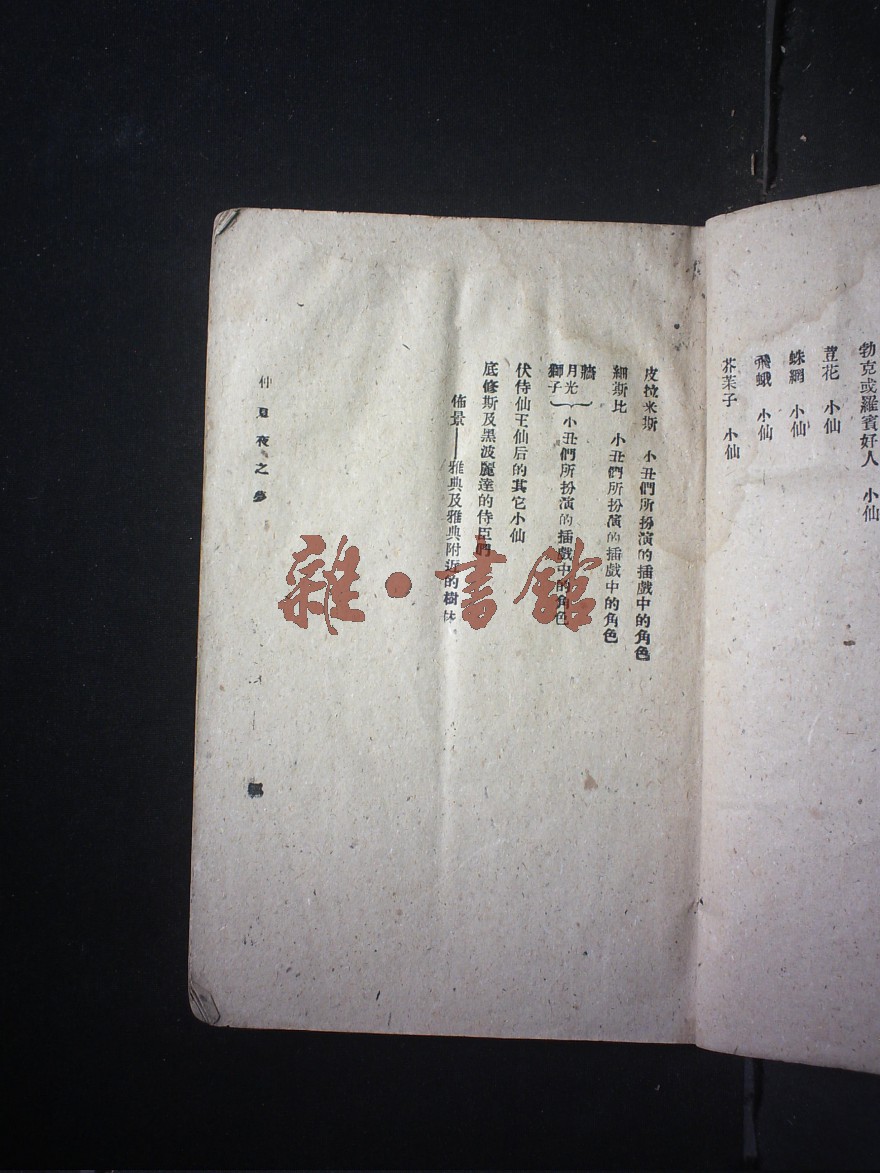 勃克或羅賓好人 小仙
荳花 小仙
蛛網 小仙
飛蛾 小仙
芥茉子 小仙
皮拉米斯 小丑們所扮演的插戲中的角色
細斯比 小丑們所扮演的插戲中的角色
牆
月光
獅子
小丑們所扮演的插戲中的角色
伏侍仙王仙后的其它小仙
底修斯及黑波麗達的侍臣們
佈景——雅典及雅典附近的樹林
仲夏夜之夢
雜·書館